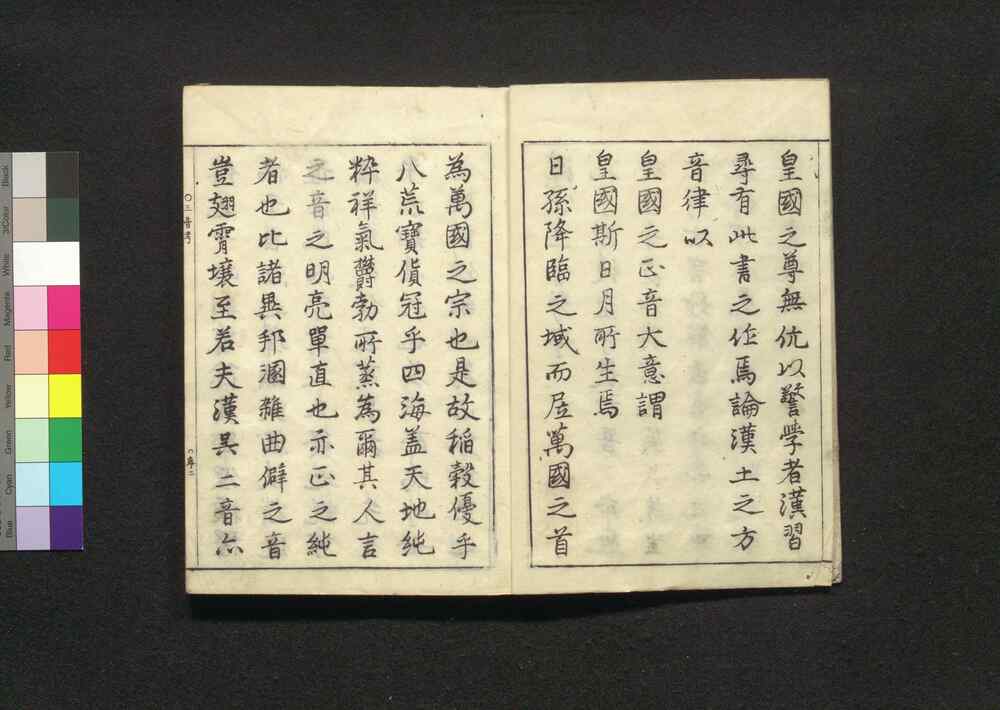 皇國之尊無伉以警學者漢習
尋有此書之作焉論漢土之方
音律以
皇國之正音大意謂
皇國斯日月所生焉
日孫降臨之域而居萬國之首
為萬國之宗也是故稲穀優乎
八荒寶貨冠乎四海盖天地純
粋祥氣欝勃所蒸為爾其人言
之音之明亮單直也亦正之純
者也比諸異邦溷雜曲僻之音
豈翅霄壌至若夫漢呉二音亦
○三音考
○序二
Black
3/Color
White
Magenta
Red
Yellow
Green
Cyan
Blue